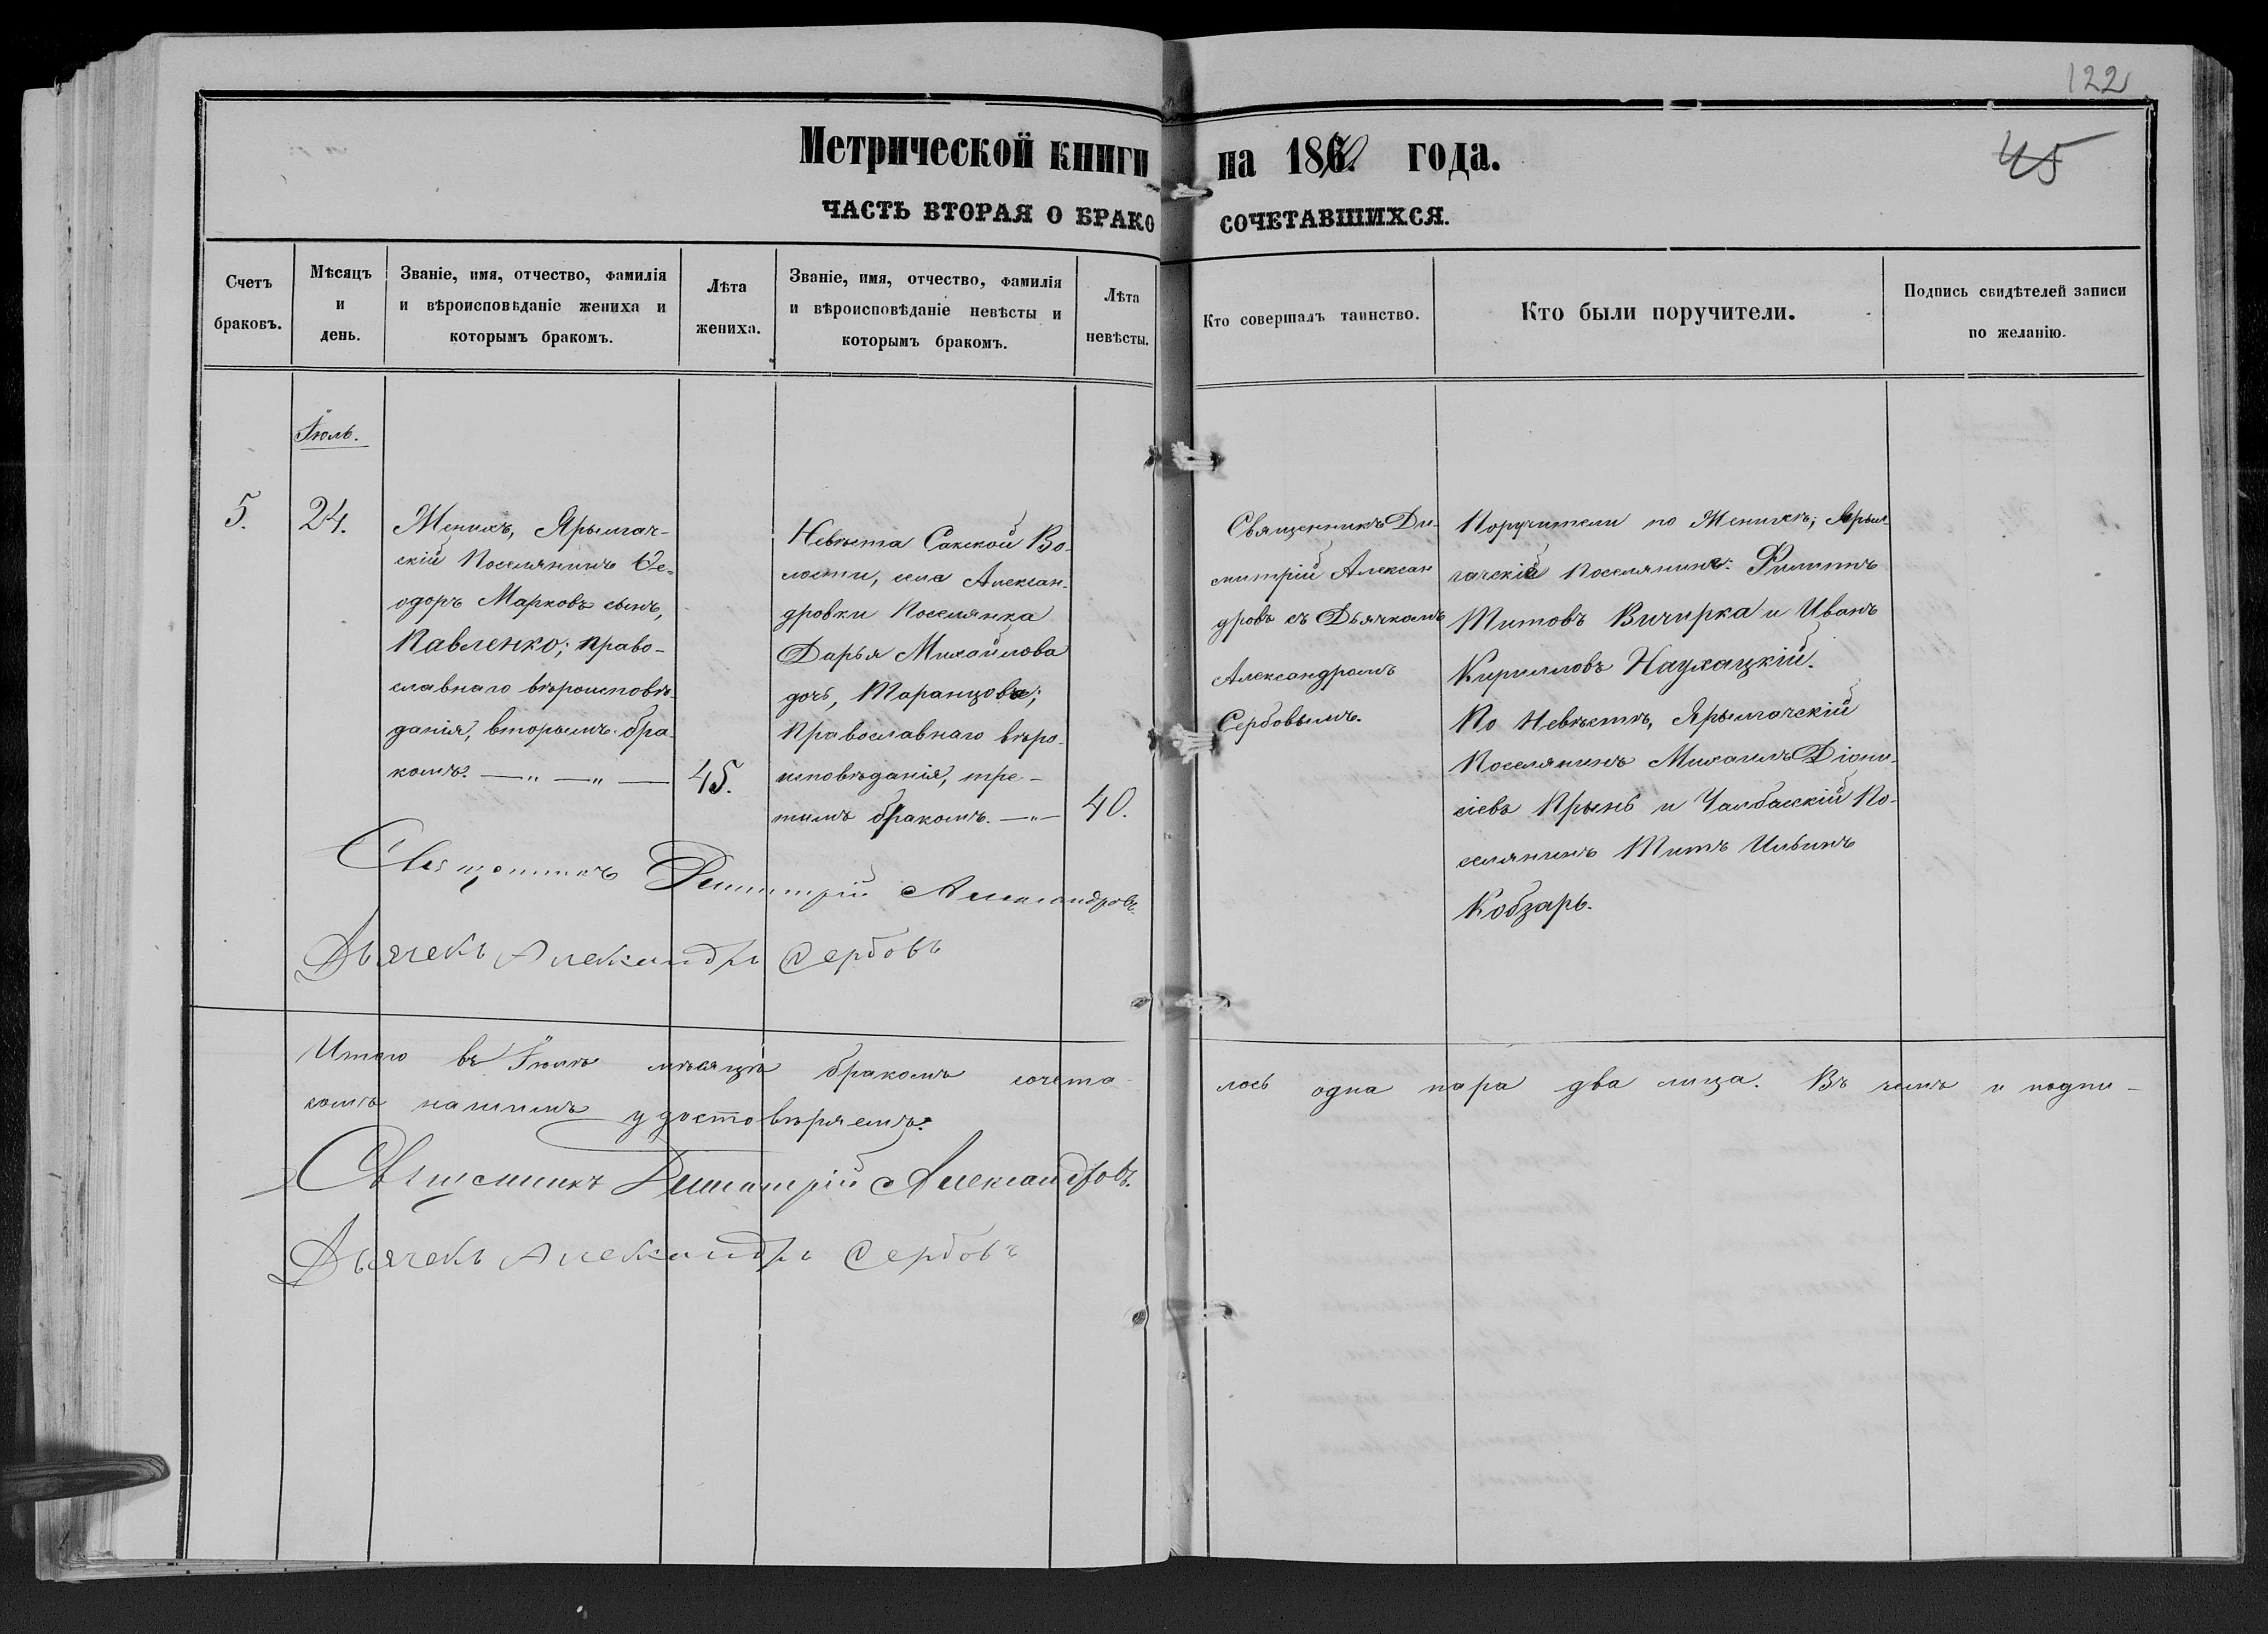 122
45
Метрической книги на 1870 года.
ЧАСТЬ ВТОРАЯ О БРАКОСОЧЕТАВШИХСЯ.
Счетъ
браковъ.
Мѣсяцъ
и
день.
Званіе, имя, отчество, фамилія
и вѣроисповѣданіе жениха и
которымъ бракомъ.
Лѣта
жениха.
Званіе, имя, отчество, фамилія
и вѣроисповѣданіе невѣсты и
которымъ бракомъ.
Лѣта
невѣсты.
Кто совершалъ таинство.
Кто были поручители.
Подпись свидѣтелей записи
по желанію.
Іюль.
5.
24.
Женихъ, Ярылгач-
скій Поселянинъ Ѳе-
одоръ Марковъ сынъ,
Павленко; право-
славнаго вѣроисповѣ-
данія, вторымъ бра-
комъ. — „ — „ —
45.
Невѣста Сакской Во-
лости, села Алексан-
дровки Поселянка
Дарья Михайлова
дочь, Таранцова;
Православнаго вѣро-
исповѣданія, тре-
тимъ бракомъ. — „ —
40.
Священникъ Ди-
митрій Алексан
дровъ съ Дьячкомъ
Александромъ
Сербовымъ.
Поручители по Женихѣ; Ярыл-
гачскіе поселяне: Филиппъ
Титовъ Вичирка и Иванъ
Кирилловъ Наухацкій.
По Невѣстѣ, Ярылгачскій
Поселянинъ Михаилъ Діони-
сіевъ Прынь и Чалбасскій По-
селянинъ Титъ Ильинъ
Кобзарь.
Священникъ Димитрій Александровъ.
Дьячекъ Александръ Сербовъ
Итого въ Іюлѣ мѣсяцѣ бракомъ сочета-лось одна пара два лица. Въ чемъ и подпи-
сомъ нашимъ удостовѣряемъ:
Священникъ Димитрій Александровъ.
Дьячекъ Александръ Сербовъ